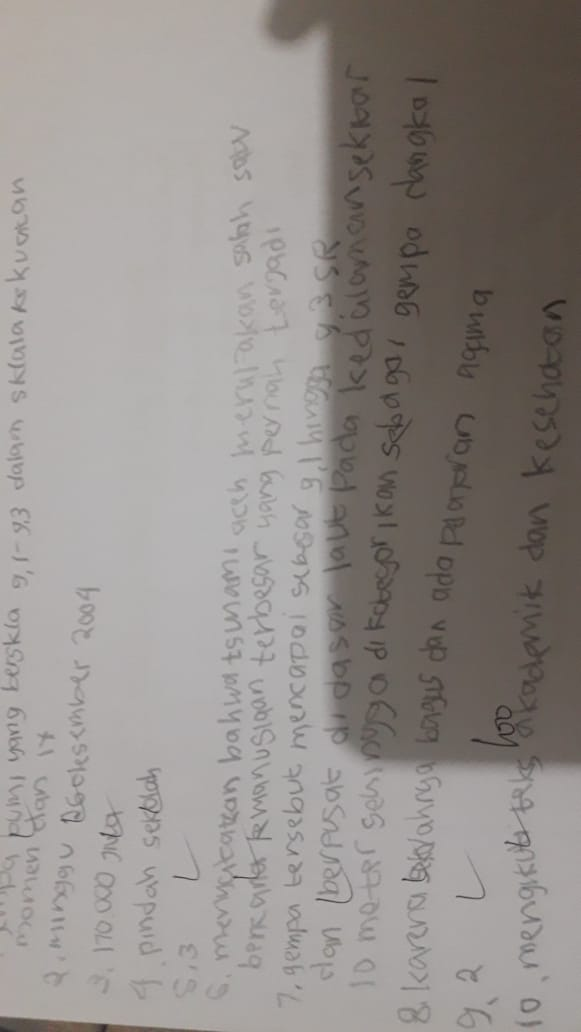 bumi yang berskla 9,1-9,3 dalam sklala kekuatan
momen dan IX
2. minggu 26 desember 2004
3. 170.000 jiwa
4. pindah sekolah
5. 3
6. menyatakan bahwa tsunami aceh merupakan salah satu
kemanusiaan terbesar yang pernah terjadi
7. gempa tersebut mencapai sebesar 9,1 hingga 9,3 SR
dan berpusat di dasar laut pada kedalaman sekitar
10 meter sehingga di kategorikan sebagai gempa dangkal
8. karena sekolahnya bagus dan ada pelajaran agama
9. 2
100
10. mengikuti teks akademik dan kesehatan